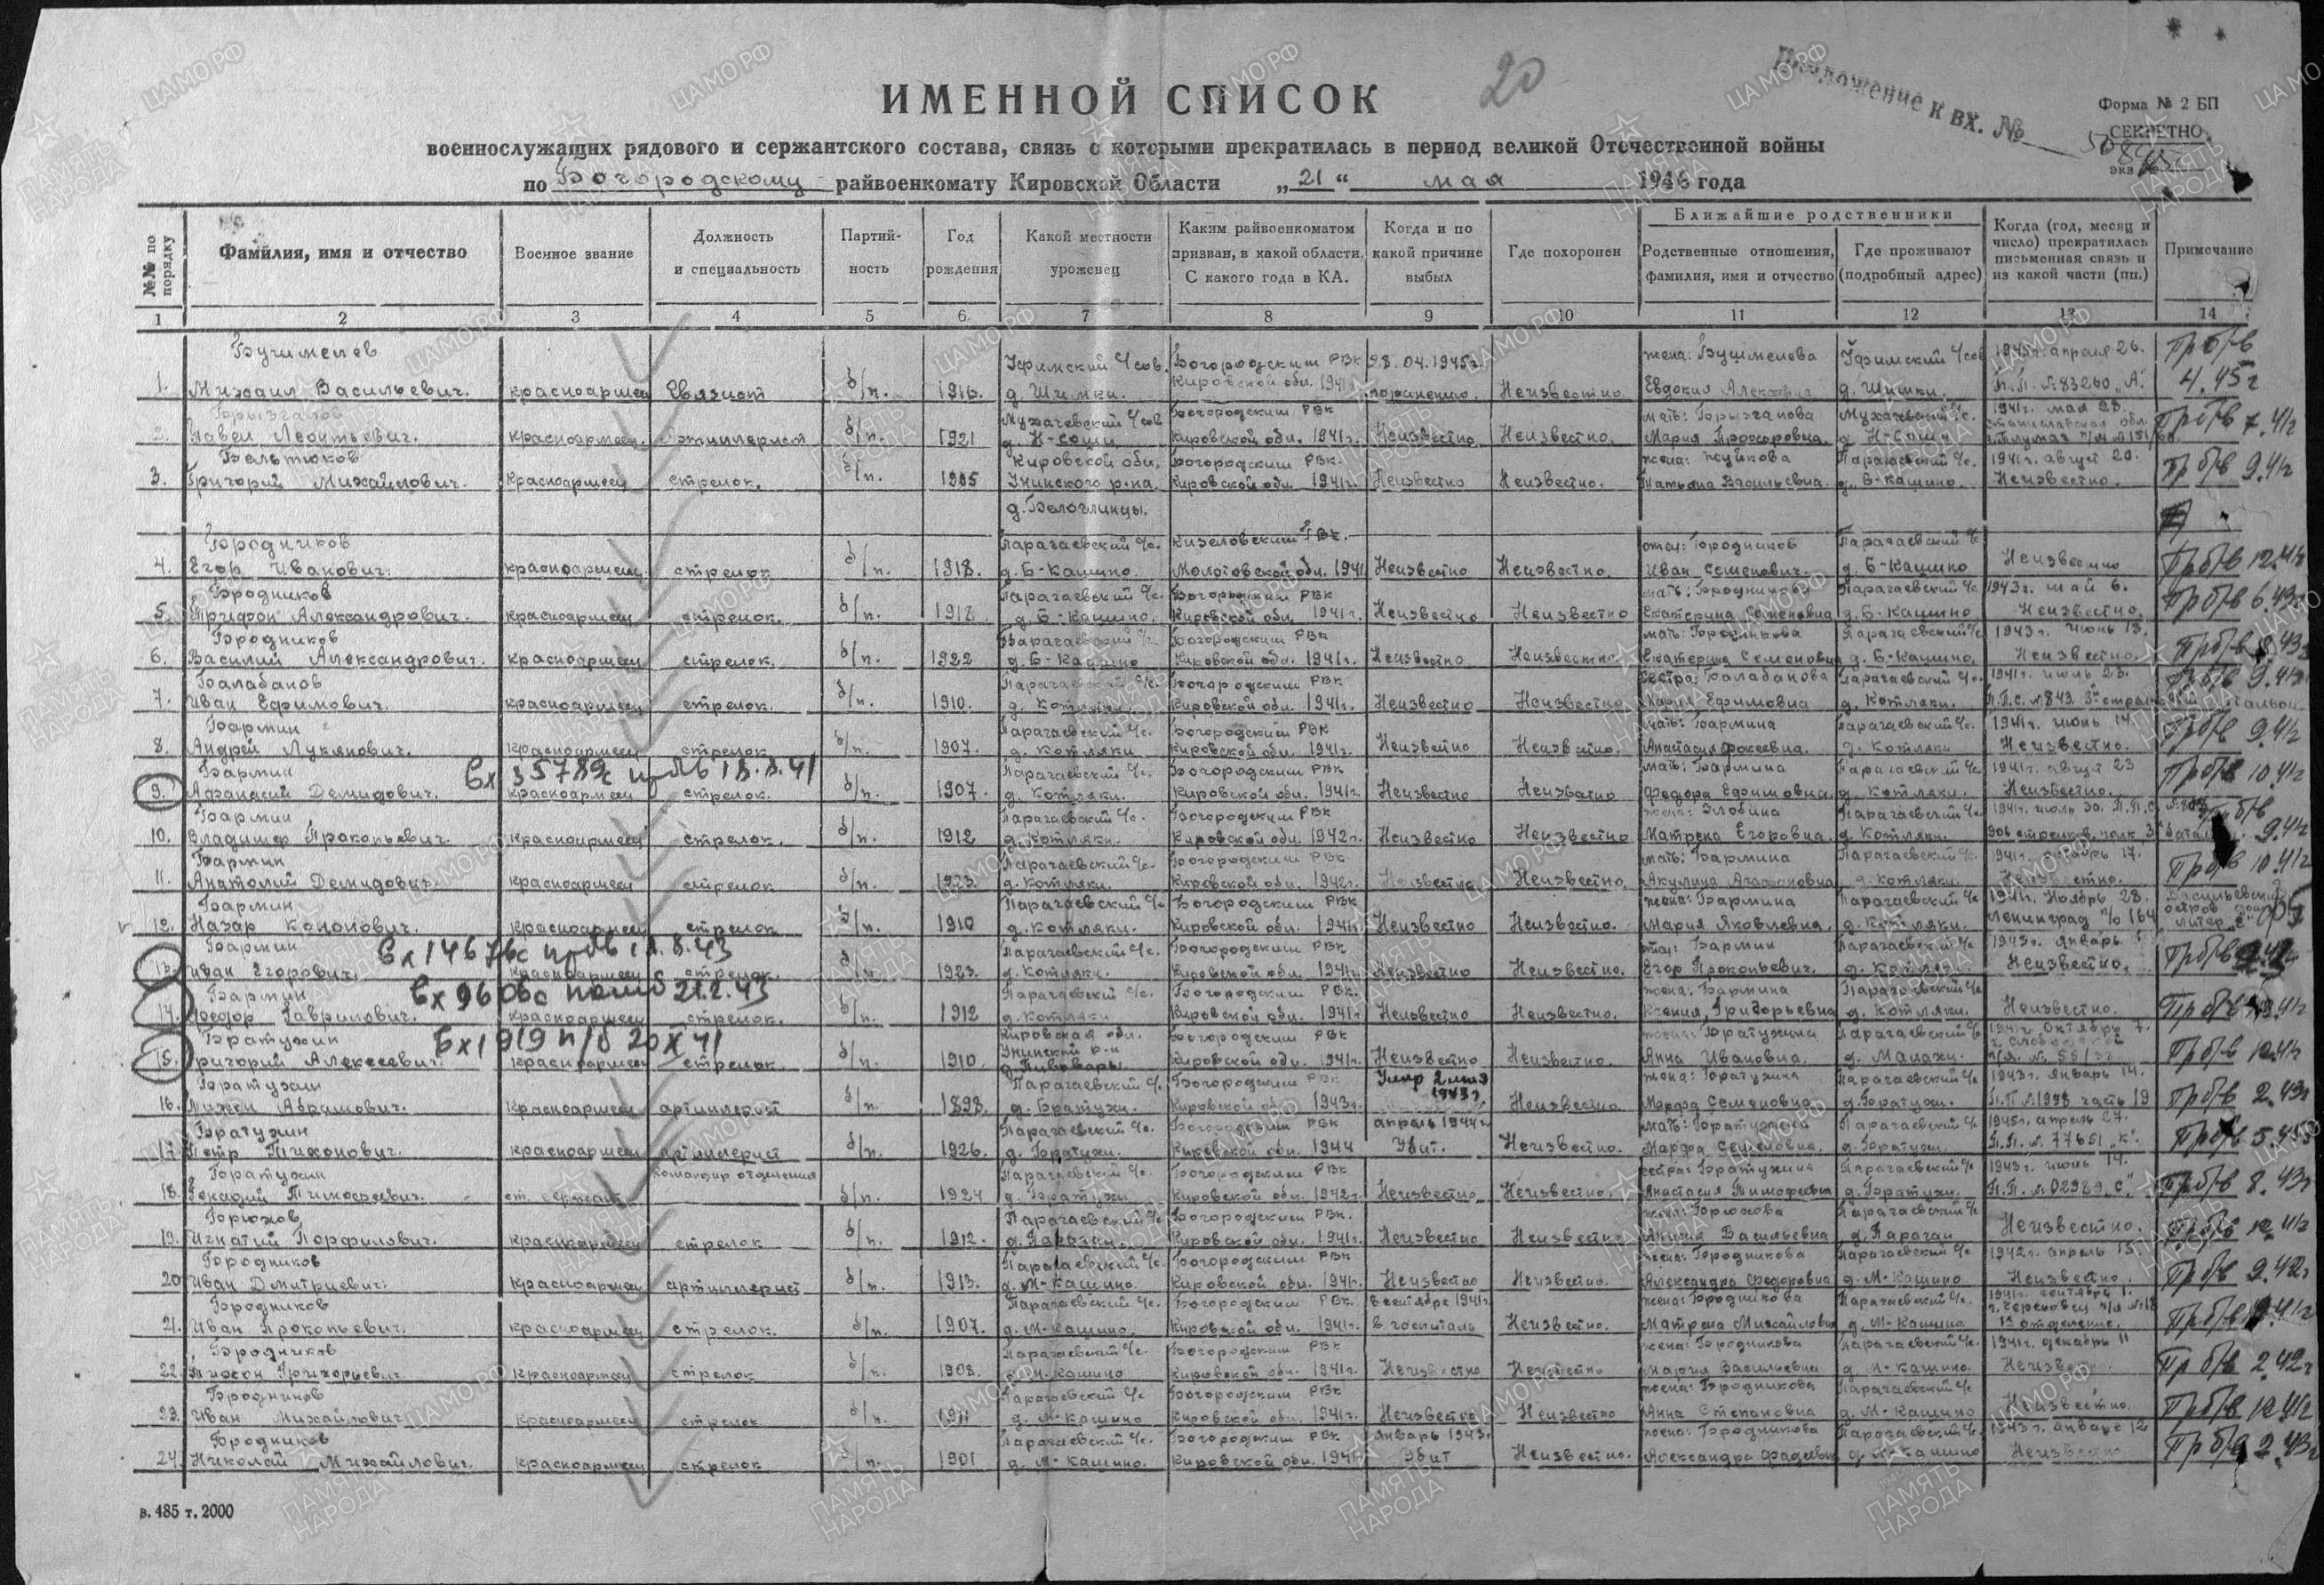 20
Приложение к вх. №
50845
Форма № 2 БП
СЕКРЕТНО
экз
ИМЕННОЙ СПИСОК
военнослужащих рядового и сержантского состава, связь с которыми прекратилась в период великой Отечественной войны
по Богородскому райвоенкомату Кировской Области „21“ мая 1946 года
№№ по порядку
Фамилия, имя и отчество
Военное звание
Должность и специальность
Партийность
Год рождения
Какой местности уроженец
Каким райвоенкоматом призван, в какой области, С какого года в КА.
Когда и по какой причине выбыл
Где похоронен
Ближайшие родственники
Родственные отношения, фамилия, имя и отчество
Где проживают (подробный адрес)
Когда (год, месяц и число) прекратилась письменная связь и из какой части (пп.)
Примечание
1 2 3 4 5 6 7 8 9 10 11 12 13 14
1. Михаил Васильевич. красноармеец Связист б/п. 1916. д. Шишки. Богородским РВК Кировской обл. 1941 28.04.1945г. Неизвестно жена: Бушмелева Евдокия д. Шишки. 1945г. апреля 26. П.П. №83260 „А“. Пр б/в 4.45г
2. Павел Леонтьевич. красноармеец б/п. 1921 Богородским РВК Кировской обл. 1941г. Неизвестно Неизвестно. мать: Мария Прохоровна. 1941г. мая 28. Пр б/в 7.41г
3. Вельтюков Григорий Михайлович. красноармеец стрелок. б/п. 1905 Кировской обл. Унинского р-на. д. Белоглинцы. Богородским РВК. Кировской обл. 1941г. Неизвестно Неизвестно. жена: Татьяна Васильевна. Парачаевский с/с. д. Б-Кашино. 1941г. август 20. Неизвестно. Пр б/в 9.41г
4. Бродников Егор Иванович. красноармеец стрелок б/п. 1918. Парачаевский с/с. д. Б-Кашино. Кизеловским РВК. Молотовской обл. 1941 Неизвестно Неизвестно. отец: Бродников Иван Семенович. Парачаевский с/с д. Б-Кашино Неизвестно Пр б/в 12.41г
5. Бродников Трифон Александрович. красноармеец стрелок. б/п. 1918 Парачаевский с/с. д. Б-Кашино. Богородским РВК Кировской обл. 1941г. Неизвестно Неизвестно мать: Бродникова Екатерина Семеновна Парачаевский с/с д. Б-Кашино 1943г. май 6. Неизвестно. Пр б/в 6.43г
6. Бродников Василий Александрович. красноармеец стрелок. б/п. 1922 Парачаевский с/с. д. Б-Кашино Богородским РВК Кировской обл. 1941г. Неизвестно Неизвестно мать: Бродникова Екатерина Семеновна Парачаевский с/с д. Б-Кашино. 1943г. июнь 13. Неизвестно. Пр б/в 8.43г
7. Балабанов Иван Ефимович. красноармеец стрелок. б/п. 1910. Парачаевский с/с. д. Котляки. Богородским РВК Кировской обл. 1941г. Неизвестно Неизвестно сестра: Балабанова Мария Ефимовна Парачаевский с/с. д. Котляки. 1941г. июль 23. П.П.С. №843 Пр б/в 9.41г
8. Бармин Андрей Лукянович. красноармеец стрелок б/п. 1907. Парачаевский с/с. д. Котляки Богородским РВК Кировской обл. 1941г. Неизвестно Неизвестно. мать: Бармина Анастасия Фокеевна. Парачаевский с/с. д. Котляки 1941г. июнь 14. Неизвестно. Пр б/в 9.41г
9. Бармин Афанасий Демидович. Вх 35789с 18.8.41 красноармеец стрелок. б/п. 1907. Парачаевский с/с. д. Котляки. Богородским РВК Кировской обл. 1941г. Неизвестно Неизвестно мать: Бармина Федора Ефимовна. Парачаевский с/с д. Котляки. 1941г. август 23 Неизвестно. Пр б/в 10.41г
10. Бармин Владимир Прокопьевич. красноармеец стрелок. б/п. 1912 Парачаевский с/с. д. Котляки. Богородским РВК Кировской обл. 1942г. Неизвестно Неизвестно жена: Злобина Матрена Егоровна. Парачаевский с/с д. Котляки. 1941г. июль 30. П.П.С. Пр б/в 9.41г
11. Бармин Анатолий Демидович. красноармеец стрелок б/п. 1923. Парачаевский с/с. д. Котляки. Богородским РВК Кировской обл. 1942г. Неизвестно Неизвестно. мать: Бармина Акулина Агафоновна Парачаевский с/с д. Котляки. Неизвестно. Пр б/в 10.41г
12. Бармин Назар Кононович. красноармеец стрелок б/п. 1910 Парачаевский с/с д. Котляки. Богородским РВК Кировской обл. 1941г. Неизвестно Неизвестно. жена: Бармина Мария Яковлевна. Парачаевский с/с д. Котляки. 1941г. Ноябрь 28. Ленинград п/о 164
13. Бармин Иван Егорович. Вх 14676с красноармеец стрелок. б/п. 1923. Парачаевский с/с. д. Котляки. Богородским РВК Кировской обл. 1941г. Неизвестно Неизвестно. отец: Бармин Егор Прокопьевич. Парачаевский с/с д. Котляки. 1943г. январь Неизвестно. Пр б/в
14. Бармин Федор Гаврилович. Вх 9606с 21.2.43 красноармеец стрелок. б/п. 1912 Парачаевский с/с. д. Котляки Богородским РВК. Кировской обл. 1941г Неизвестно Неизвестно. жена: Бармина Ксения Григорьевна Парачаевский с/с д. Котляки. Неизвестно. Пр б/в
15. Братухин Григорий Алексеевич. Вх 1919 п/б 20 X 41 красноармеец стрелок б/п. 1910. Кировская обл. Унинский р-н д. Пивовары Богородским РВК Кировской обл. 1941г. Неизвестно Неизвестно. жена: Братухина Анна Ивановна. Парачаевский с/с д. Малахи. 1941г. Октябрь 7. Пр б/в 10.41г
16. Братухин Абрамович. красноармеец артиллерист б/п. 1898. Парачаевский с/с. д. Братухи. Богородским РВК Кировской обл. 1943г. Умер 2 мая 1943г. Неизвестно жена: Братухина Марфа Семеновна Парачаевский с/с д. Братухи. 1943г. январь 14. П.П. №1998 часть 19 Пр б/в 2.43г
17. Братухин Петр Тихонович. красноармеец артиллерист б/п. 1926. Парачаевский с/с. д. Братухи. Богородским РВК Кировской обл. 1944 апрель 1944г. Убит. Неизвестно. мать: Братухина Марфа Семеновна. Парачаевский с/с д. Братухи. 1945г. апрель 27. П.П. № 77651 „К“. Пр б/в 5.45г
18. Братухин Генадий Тимофеевич. ст. сержант Командир отделения б/п. 1924 Парачаевский с/с. д. Братухи. Богородским РВК Кировской обл. 1942г. Неизвестно Неизвестно. сестра: Братухина Анастасия Тимофеевна Парачаевский с/с д. Братухи. 1943г. июнь 14. П.П. №02989 „С“ Пр б/в 8.43г
19. Брюхов Игнатий Порфилович. красноармеец стрелок б/п. 1912. Парачаевский с/с д. Парачаи Богородским РВК. Кировской обл. 1941г. Неизвестно Неизвестно жена: Брюхова Васильевна Парачаевский с/с д. Парачаи Неизвестно. Пр б/в 12.41г
20. Бродников Иван Дмитриевич. красноармеец артиллерист б/п. 1913. Парачаевский с/с. д. М-Кашино. Богородским РВК Кировской обл. 1941г. Неизвестно Неизвестно. жена: Бродникова Александра Федоровна Парачаевский с/с д. М-Кашино 1942г. апрель 15 Неизвестно. Пр б/в 9.42г
21. Бродников Иван Прокопьевич. красноармеец стрелок. б/п. 1907. Парачаевский с/с. д. М-Кашино. Богородским РВК. Кировской обл. 1941г. в сентябре 1941г. в госпиталь Неизвестно. жена: Бродникова Матрена Михайловна Парачаевский с/с. д. М-Кашино 1941г. сентябрь 1. г. Череповец Пр б/в
22. Бродников Тихон Григорьевич. красноармеец стрелок б/п. 1903. Парачаевский с/с. д. М-Кашино Богородским РВК Кировской обл. 1941г. Неизвестно Неизвестно жена: Бродникова Мария Васильевна Парачаевский с/с. д. М-Кашино. 1941г. декабрь 11 Неизвестно. Пр б/в 2.42г
23. Бродников Иван Михайлович. красноармеец стрелок б/п. 1911 Парачаевский с/с д. М-Кашино Богородским РВК Кировской обл. 1941г. Неизвестно Неизвестно жена: Бродникова Анна Степановна Парачаевский с/с д. М-Кашино Неизвестно. Пр б/в 12.41г
24. Бродников Николай Михайлович. красноармеец стрелок б/п. 1901 Парачаевский с/с. д. М-Кашино. Богородским РВК Кировской обл. 1941г. январь 1943г. Убит Неизвестно. жена: Бродникова Александра Фадеевна Парачаевский с/с. д. М-Кашино 1943г. январь 12 Неизвестно Пр б/в 2.43г
в. 485 т. 2000
ЦАМО РФ
ПАМЯТЬ НАРОДА